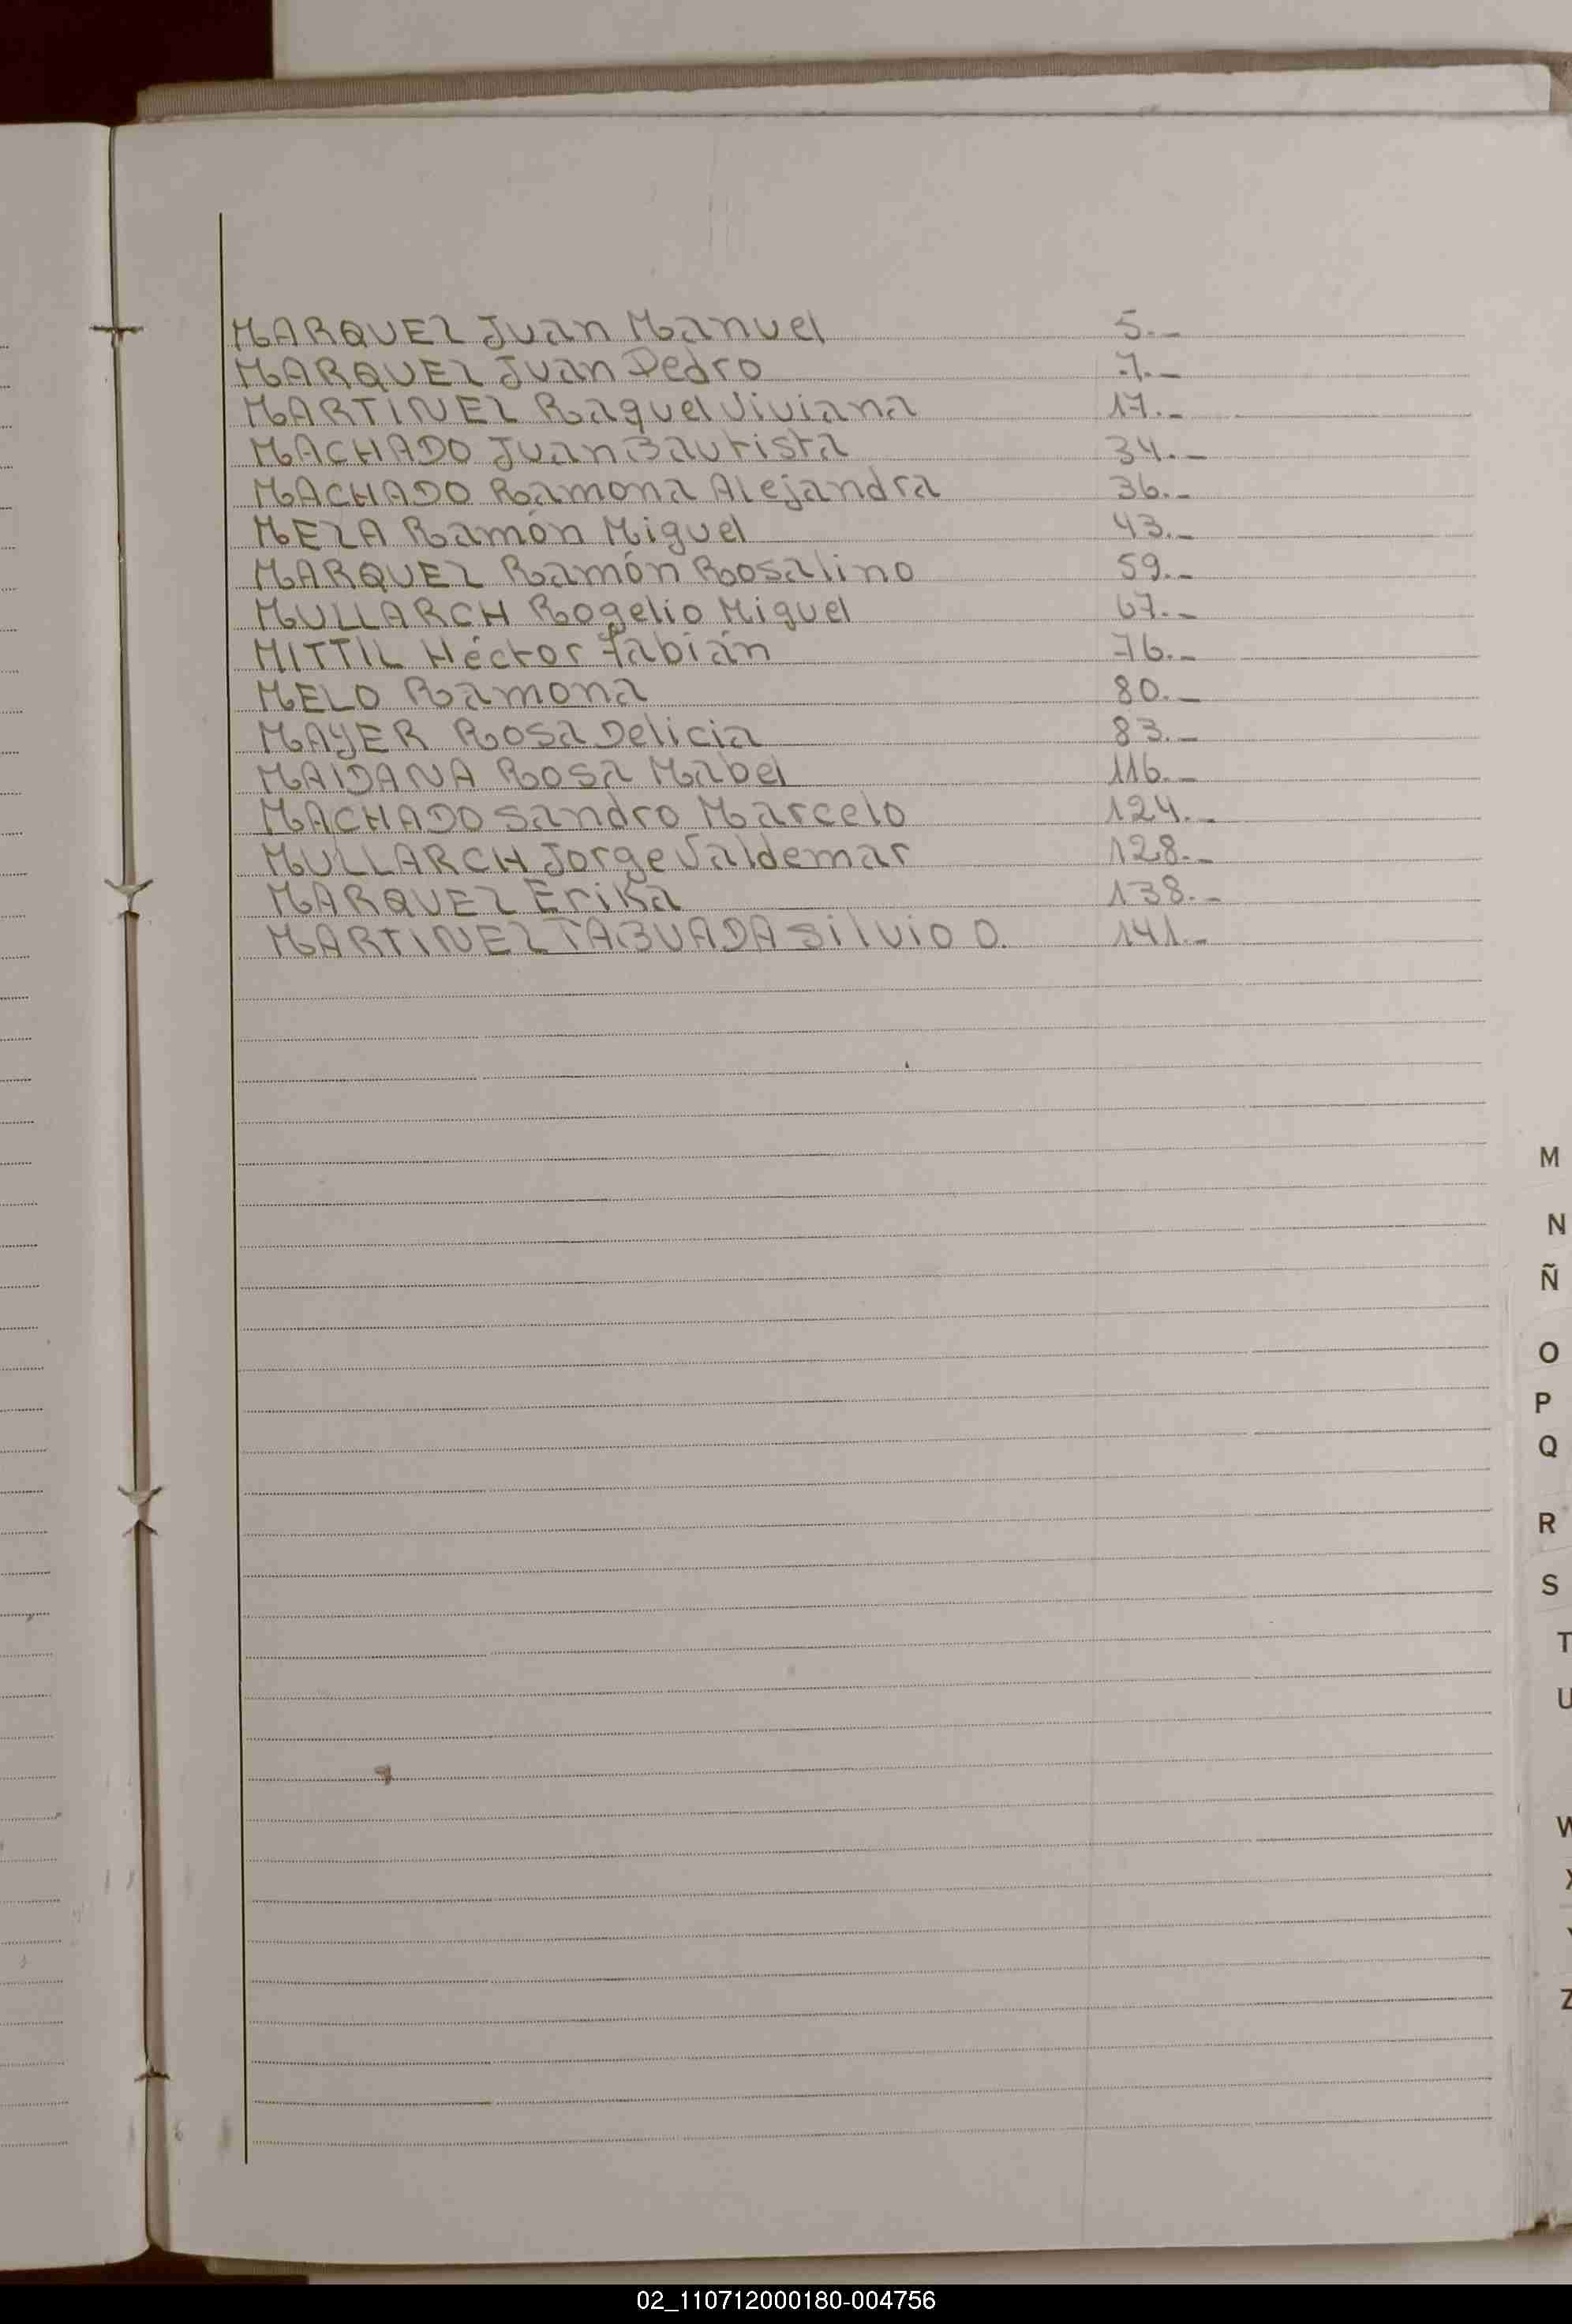 MARQUEZ Juan Manuel 5.-
MARQUEZ Juan Pedro 7.-
MARTINEZ Raquel Viviana 17.-
MACHADO Juan Bautista 34.-
MACHADO Ramona Alejandra 36.-
MEZA Ramón Miguel 43.-
MARQUEZ Ramón Rosalino 59.-
MULLARCH Rogelio Miguel 67.-
MITTIL Héctor Fabián 76.-
MELO Ramona 80.-
MAYER Rosa Delicia 83.-
MAIDANA Rosa Mabel 116.-
MACHADO Sandro Marcelo 124.-
MULLARCH Jorge Valdemar 128.-
MARQUEZ Erika 138.-
MARTINEZ TABUADA Silvio O. 141.-
M
N
Ñ
O
P
Q
R
S
T
U
W
X
Y
Z
02_110712000180-004756